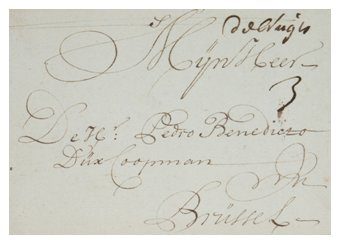 de Nuijs
Mÿn Heer
3
De Hr. Pedro Benedicto
Düx Coopman
Brüssel